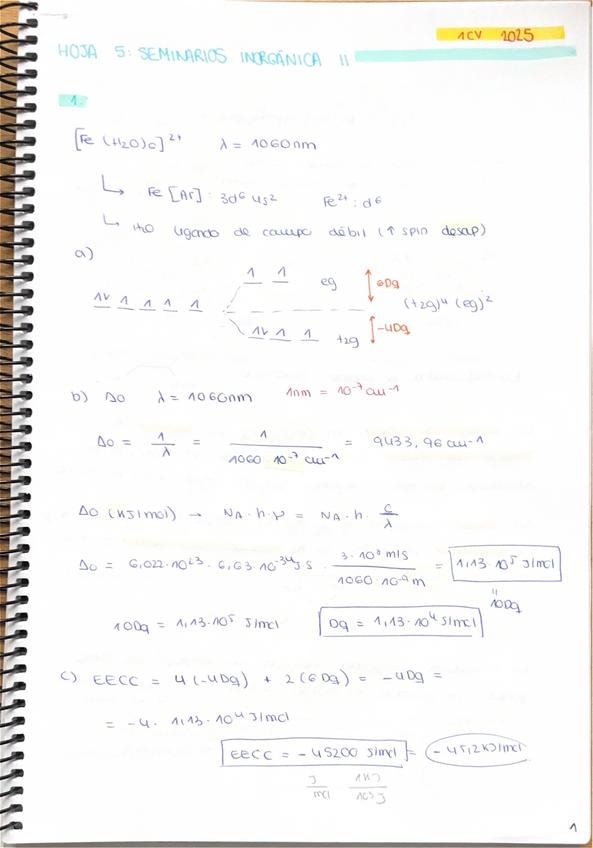 1CV 2025
HOJA 5: SEMINARIOS INORGÁNICA II
1.
[Fe(H2O)6]²⁺ λ = 1060nm
↳ Fe [Ar]: 3d⁶ 4s² Fe²⁺: d⁶
↳ H2O ligando de campo débil (↑ spin desap)
a)
1 1 eg 6Dq
1v 1 1 1 1 (t2g)⁴ (eg)²
1v 1 1 t2g -4Dq
b) Δo λ = 1060nm 1nm = 10⁻⁷ cm⁻¹
Δo = 1/λ = 1/(1060·10⁻⁷ cm⁻¹) = 9433,96 cm⁻¹
Δo (kJ/mol) → NA·h·ν = NA·h·c/λ
Δo = 6,022·10²³·6,63·10⁻³⁴ J·s · (3·10⁸ m/s)/(1060·10⁻⁹ m) = 1,13·10⁵ J/mol
"
10Dq
10Dq = 1,13·10⁵ J/mol Dq = 1,13·10⁴ J/mol
c) EECC = 4(-4Dq) + 2(6Dq) = -4Dq =
= -4 · 1,13·10⁴ J/mol
EECC = -45200 J/mol = -45,2 kJ/mol
J/mol 1kJ/10³J
1